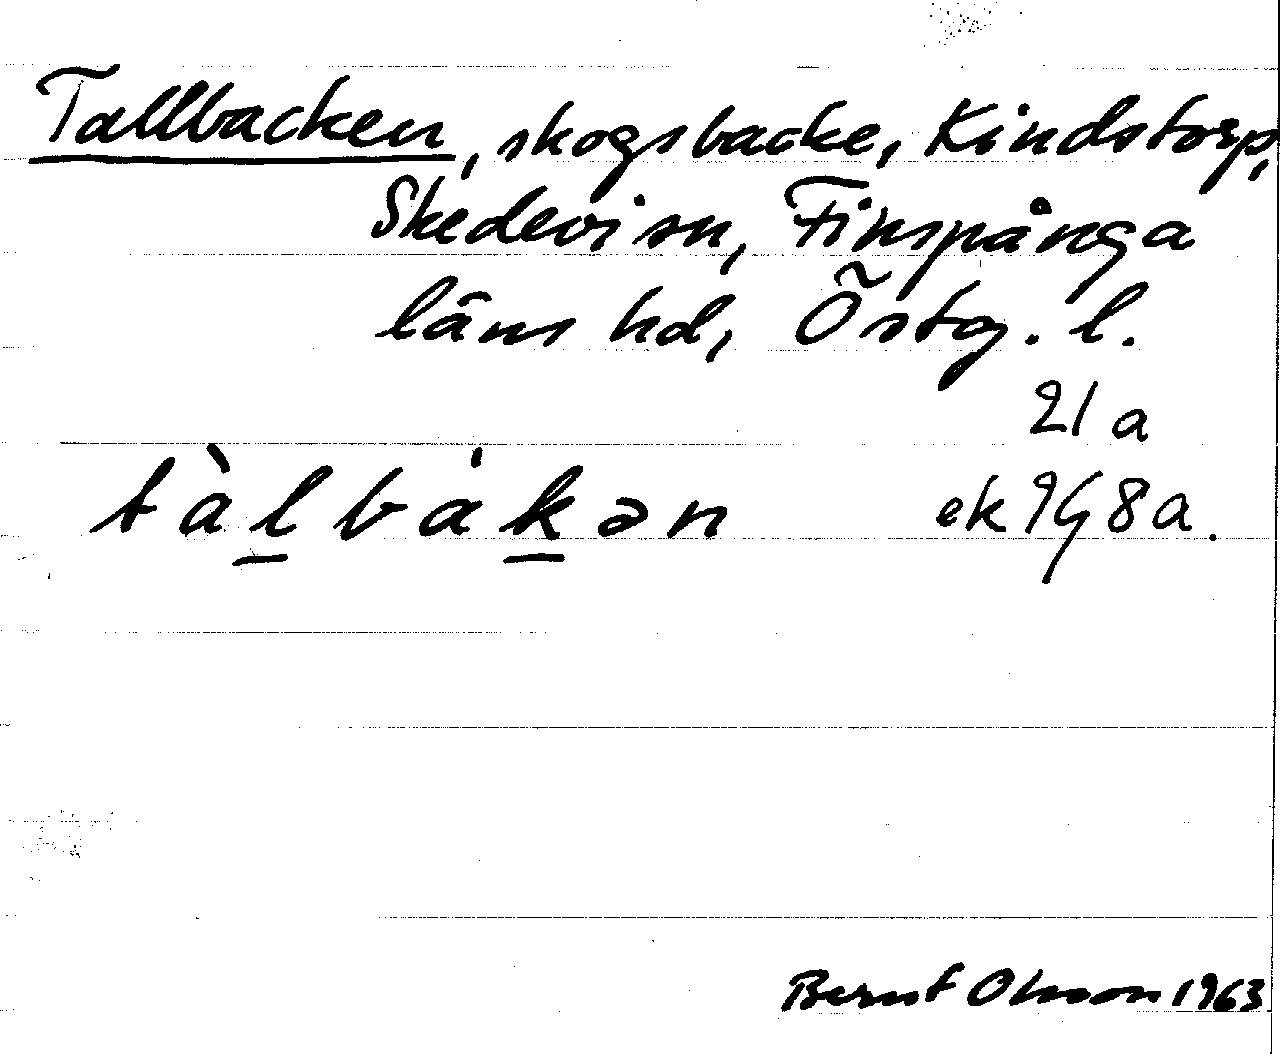 Tallbacken, skogsbacke, Kindstorp,
Skedevi sn, Finspånga
läns hd, Östg. l.
21 a
tàl̲bák̲ən ek 9G8a.
Bernt Olsson 1963